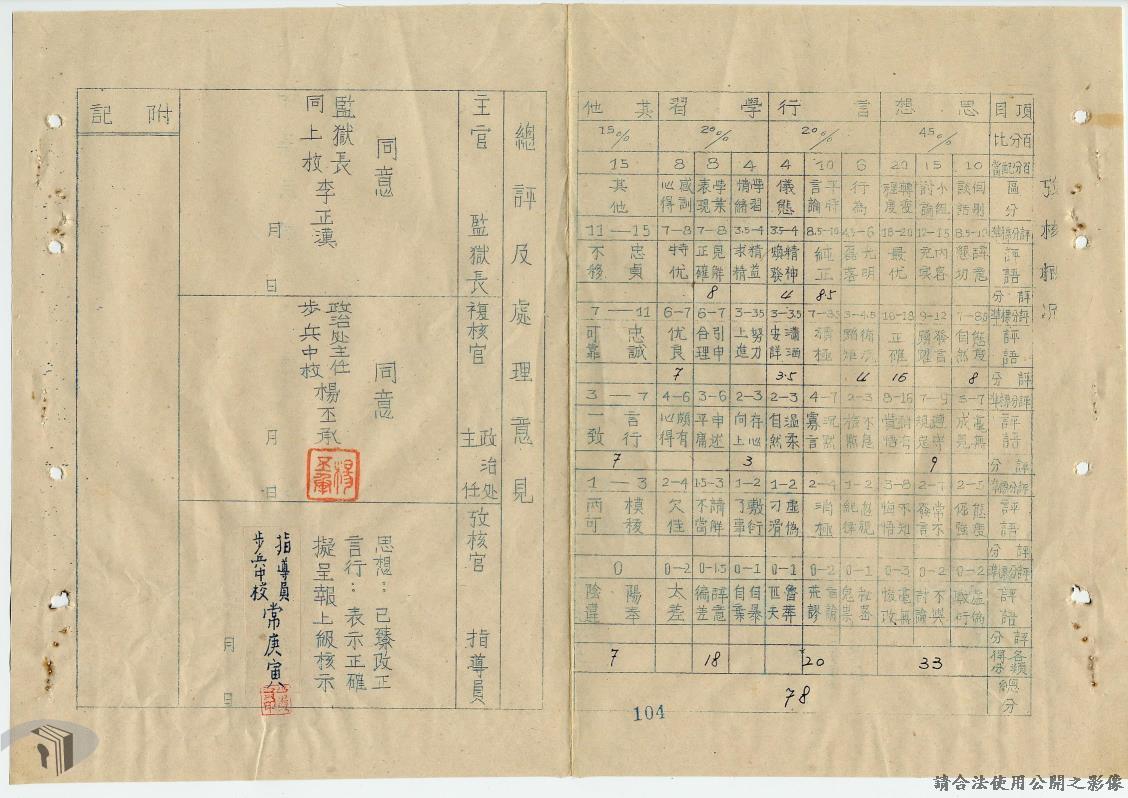 攷核概況
項目 思想 言行 學習 其他
百分比 45% 20% 20% 15%
百分配當 10 15 20 6 10 4 4 8 8 15
區分 個別談話 小組討論 轉變程度 行為 平時言論 儀態 學習情緒 學業表現 感訓心得 其他
評分標準 8.5—10 12—15 18—20 4.5—6 8.5—10 3.5—4 3.5—4 7—8 7—8 11—15
評語 誠意懇切 內容充實 最优 光明磊落 純正 精神煥發 精益求精 見解正確 特优 忠貞不移
評分 85 4 8
評分標準 7—8.5 9—12 16—18 3—4.5 7—3.5 3—3.5 3—3.5 6—7 6—7 7—11
評語 態度自然 發言踴躍 正確 積極 瀟洒安詳 努力上進 引申合理 优良 忠誠可靠
評分 8 16 4 3.5 7
評分標準 5—7 7—9 8—16 2—3 4—7 2—3 2—3 3—6 4—6 3—7
評語 毫無成見 遵守規定 沉默寡言 溫柔自然 存心向上 申述平庸 頗有心得 言行一致
評分 9 3 7
評分標準 2—5 2—7 3—8 1—2 2—4 1—2 1—2 1.5—3 2—4 1—3
評語 態度倔強 常不發言 不知悔悟 忽視紀律 消極 虛偽刁滑 敷衍了事 請解不當 欠佳 模稜兩可
評分
評分標準 0—2 0—2 0—3 0—1 0—2 0—1 0—1 0—1.5 0—2 0
評語 虛偽敷衍 不與討論 毫無悛改 言論荒謬 魯莽匹夫 自暴自棄 歪意偏差 太差 陽奉陰違
評分
各類得分 33 20 18 7
總分 78
104
總評及處理意見
攷核官 指導員
思想：已臻改正
言行：表示正確
擬呈報上級核示
指導員
步兵中校 常庚寅
月 日
複核官 政治处主任
同意
政治处主任
步兵中校 楊丕承
月 日
主官 監獄長
同意
監獄長
同上校 李正漢
月 日
附記
請合法使用公開之影像